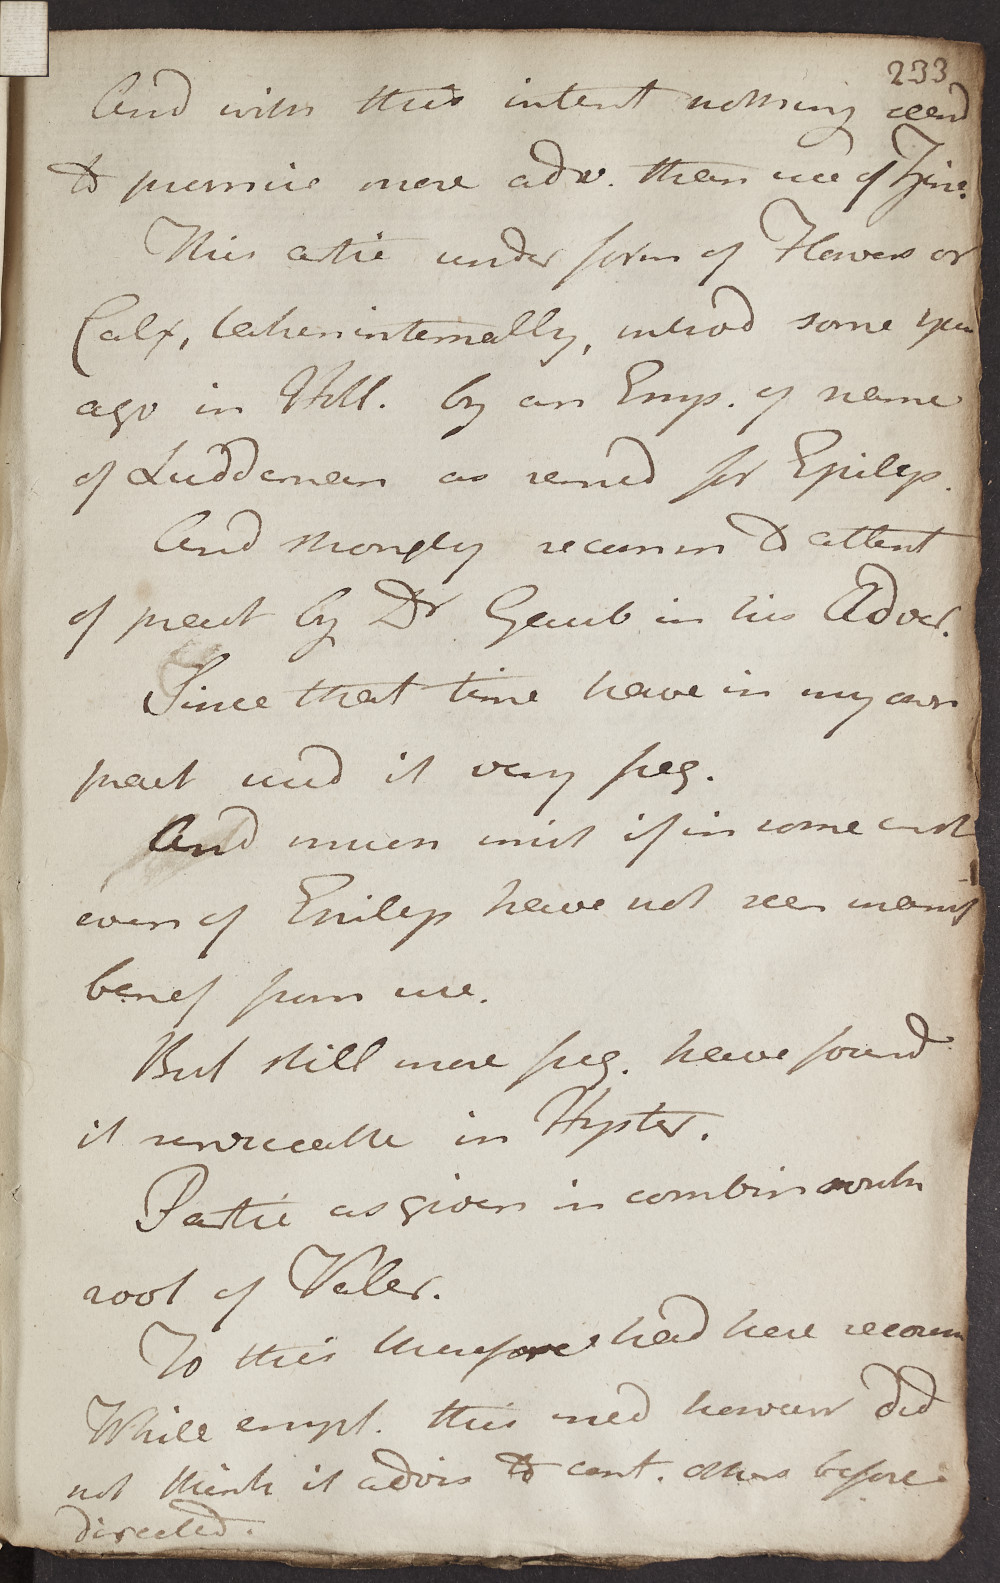 233
And with this intent nothing seemd
to promise more adv. than use of Zinc.
This artic under form of Flowers or
Calx, taken internally, introd some year
ago in Holl. by an Emp. of name
of Luddeman as remed for Epilep.
And strongly recomm to attent
of pract by Dr Gaub in his Advers.
Since that time have in my own
pract used it very freq.
And much mist if in some inst
even of Epilep have not seen manif
benef from use.
But still more freq. have found
it serviceable in Hyster.
Partic as given in combin with
root of Valer.
To this therefore had here recom
While empl. this med however did
not think it advis to cont. others before
directed.